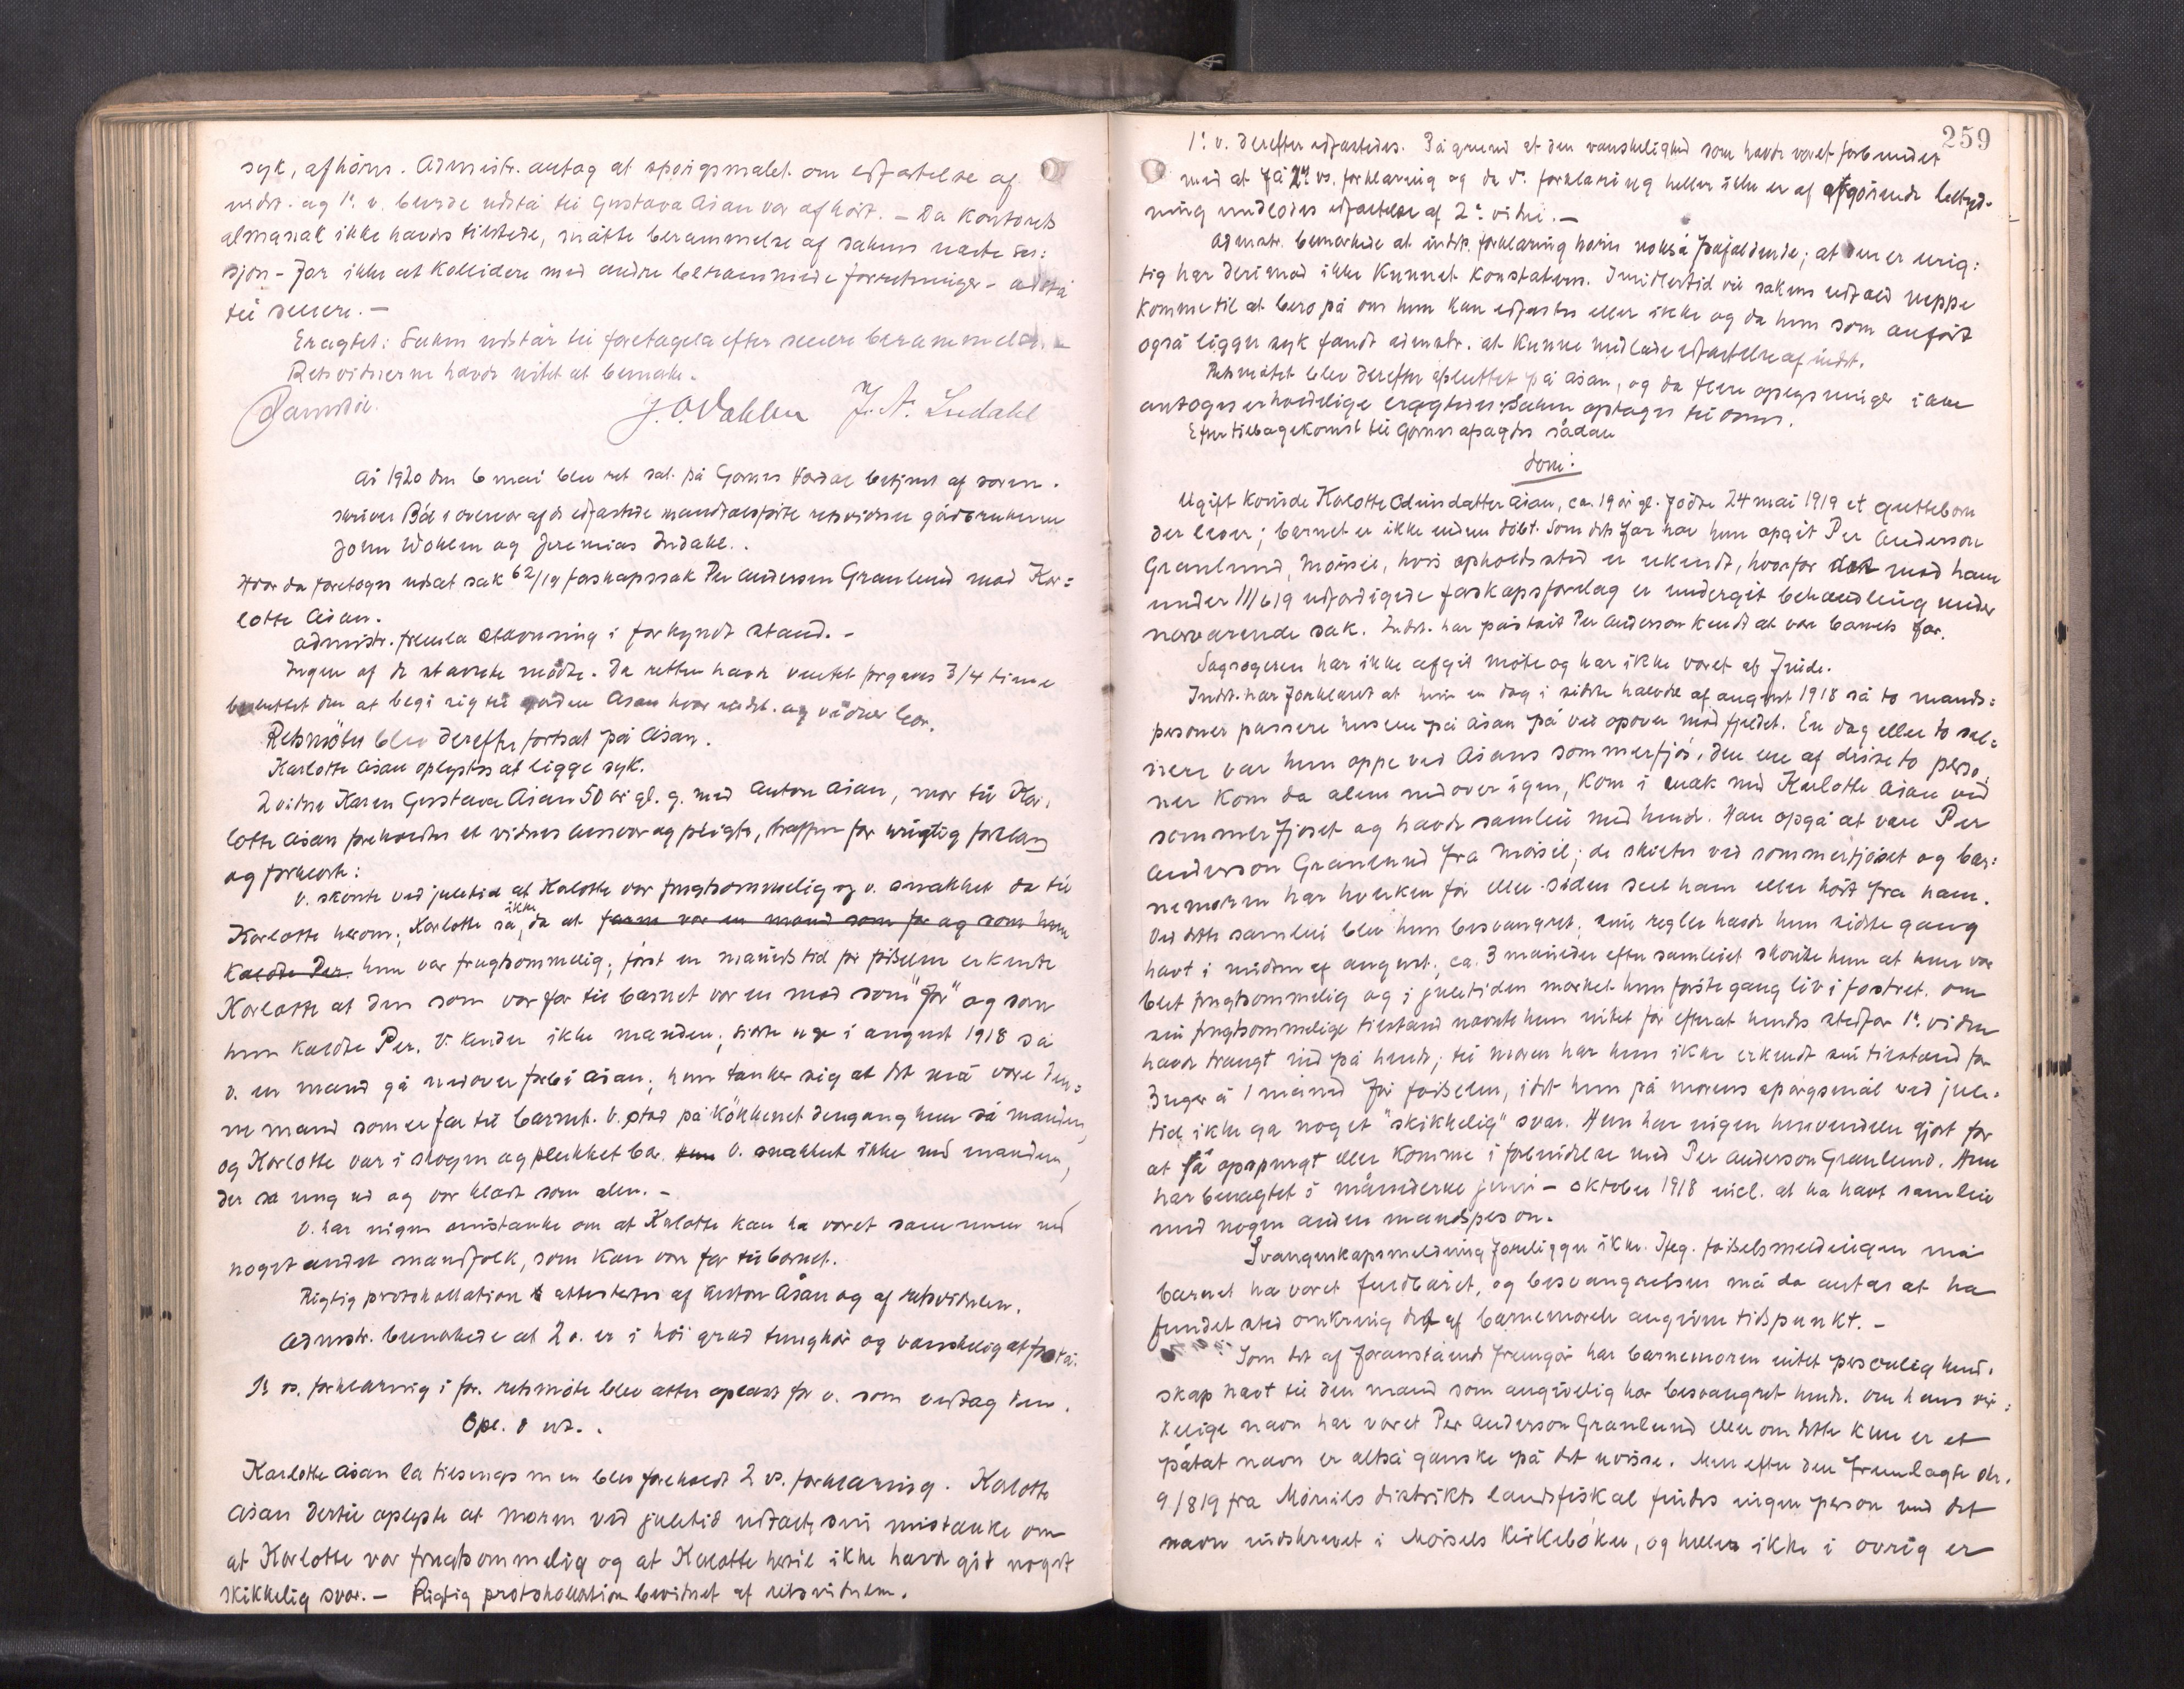 syk, afhøres. Administr. antog at spørgsmalet om edfæstelse af
indst. og 1ˢ. v. burde udstå til Gustava Åsan var afhørt. – Da kontorets
almanak ikke havdes tilstede, måtte berammelse af sakens næste ses:
sjon – for ikke at kollidere med andre berammede forretninger – udstå
til senere. –
Eragtet: Saken udstår til foretagelse efter senere berammelse. –
Retsvidnerne havde intet at bemærke.
J. O. Wohlen J. A. Indahl
År 1920 den 6 mai blev ret sat på Gornes Hordal betjent af soren-
skriver Bål i overvær af de edfæstede mandtalsførte retsvidner gårdbrukerne
John Wohlen og Jeremias Indahl. .
Hvor da foretoges utsat sak 62/19 farskapssak Per Anderson Granlund mod Kar=
lotte Åsan.
Administr. fremla stævning i forkyndt stand. –
Ingen af de stævnte mødte. Da retten havde ventet forgæves 3/4 time
besluttet den at begi sig til gården Åsan hvor indst. og vidner bor.
Retsmøtet blev derefter fortsat på Åsan.
Karlotte Åsan oplystes at ligge syk.
2 vidne Karen Gustava Åsan 50 år gl. g. med Anton Åsan, mor til Kar-
lotte Åsan foreholdtes et vidnes ansvar og pligt, straffen for urigtig forklar
og forklarte:
V. skønte ved juletid at Karlotte var frugtsommelig og v. snakket da til
Karlotte herom; Karlotte sa ikke da at faren var en mand som for og som hun
kaldte Per. hun var frugtsommelig; først en måneds tid før fødselen erkendte
Karlotte at den som var far til barnet var en mand som "for" og som
hun kaldte Per. V. kender ikke manden; sidste uge i august 1918 så
v. en mand gå nedover forbi Åsan; hun tænker sig at det må være den=
ne mand som er far til barnet. V. stod på køkkenet dengang hun så manden,
og Karlotte var i skogen og plukket bær. hun V. snakket ikke med manden,
der så ung ud og var klædt som alm. –
V. har ingen mistanke om at Karlotte kan ha været sammen med
noget andet mandfolk, som kan være far til barnet.
Rigtig protokollation attesteres af Anton Åsan og af retsvidnerne.
Administr. bemerkede at 2 v. er i høi grad tunghør og vanskelig at forstå.
1ˢ vs. forklaring i for. retsmøte blev atter oplæst for v. som vedtag den.
Opl. o vedt. .
Karlotte Åsan lå tilsengs men blev foreholdt 2 vs. forklaring. Karlotte
Åsan dertil oplyste at moren ved juletid udtalte sin mistanke om
at Karlotte var frugtsommelig og at Karlotte hertil ikke havde git noget
skikkelig svar. – Rigtig protokollation bevidnet af retsvidnerne.
259
1ˢ. v. derefter edfæstedes. På grund af den vanskelighed som havde været forbundet
med at få 2ᵈ vs. forklaring og da d. forklaring heller ikke er af afgørende betyd-
ning undlodes edfæstelse af 2ᵈ. vidne. –
Administr. bemærkede at indst. forklaring høres nokså påfaldende; at den er urig:
tig har derimod ikke kunnet konstateres. Imidlertid vil sakens udfald neppe
komme til at bero på om hun kan edfæstes eller ikke og da hun som anført
også ligger syk fandt administr. at kunne undlade edfæstelse af indst.
Retsmøtet blev derefter afsluttet på Åsan, og da flere oplysninger ikke
antoges erholdelige eragtedes: Saken optages til doms.
Efter tilbagekomst til Gornes afsagdes sådan
dom:
Ugift kvinde Karlotte Odinsdatter Åsan, ca. 19 år gl. fødte 24 mai 1919 et guttebarn
der lever; barnet er ikke endnu døbt. Som dets far har hun opgit Per Anderson
Granlund, Mörsil, hvis opholdssted er ukendt, hvorfor det mod ham
under 11/6 19 udfærdigede farskapsforelæg er undergit behandling under
nærværende sak. Indst. har påståt Per Anderson kendt at være barnets far.
Sagsøgeren har ikke afgit møte og har ikke været at finde.
Indst. har forklaret at hun en dag i sidste halvdel af august 1918 så to mands=
personer passere husene på Åsan på vei opover mod fjeldet. En dag eller to sei=
nere var hun oppe ved Åsans sommerfjøs; den ene af disse to perso-
ner kom da alene nedover igen, kom i snak med Karlotte Åsan ved
sommerfjøset og havde samleie med hende. Han opga at være Per
Anderson Granlund fra Mörsil; de skiltes ved sommerfjøset og bar:
nemoren har hverken før eller siden seet ham eller hørt fra ham.
Ved dette samleie blev hun besvangret; sine regler havde hun sidste gang
havt i midten af august; ca. 3 måneder efter samleiet skønte hun at hun var
blet frugtsommelig og i juletiden mærket hun første gang liv i fostret. Om
sin frugtsommelige tilstand nævnte hun intet før efterat hendes stedfar 1ˢ. vidne
havde trængt ind på hende; til moren har hun ikke erkendt sin tilstand før
3 uger à 1 måned før fødselen, idet hun på morens spørgsmål ved jule-
tid ikke ga noget "skikkelig" svar. Hun har ingen henvendelse gjort for
at få opspurgt eller komme i forbindelse med Per Anderson Granlund. Hun
har benægtet i månederne juni – oktober 1918 incl. at ha havt samleie
med nogen anden mandsperson.
Svangerskapsmelding foreligger ikke. Ifølg. fødselsmeldingen må
barnet ha været fuldbåret, og besvangrelsen må da antas at ha
fundet sted omkring det af barnemoren angivne tidspunkt. –
Som det af foranstående fremgår har barnemoren intet personlig kend-
skap havt til den mand som angivelig har besvangret hende. Om hans vir:
kelige navn har været Per Anderson Granlund eller om dette kun er et
påtat navn er altså ganske på det uvisse. Men efter den fremlagte skr.
9/8 19 fra Mörsils distrikts landsfiskal findes ingen person med det
navn indskrevet i Mörsils kirkebøker, og heller ikke i øvrig er